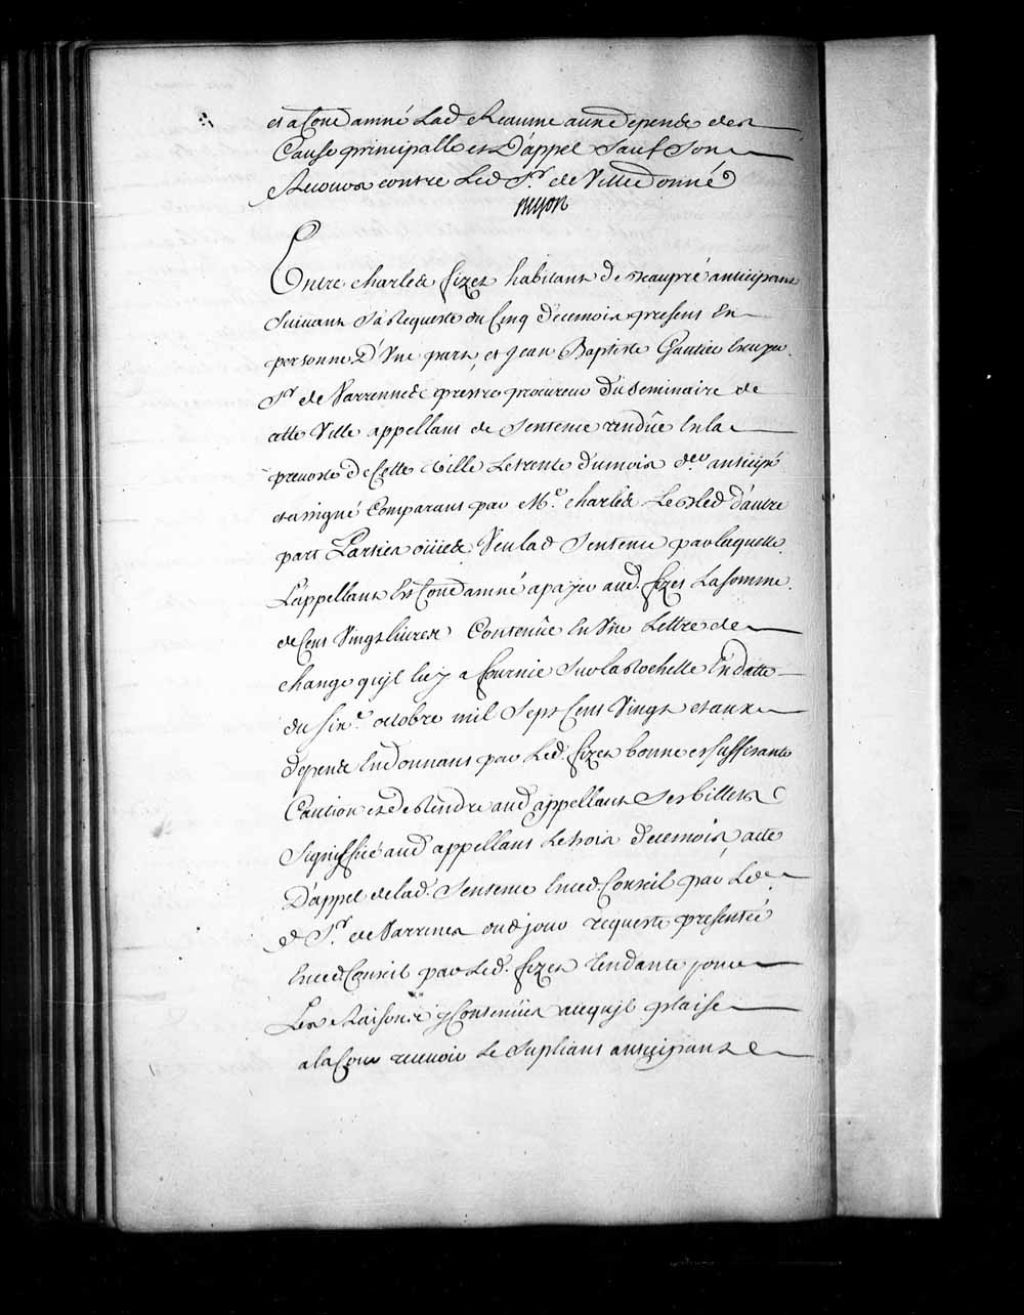 et a Condamné Lad. Reaume aux depends des
Cause principalle et D'appel Sauf Son
Recours contre Led. Sr. de Villedonné
Entre charles fizet habitant de Beaupré anticipant
Suivant Sa Requeste du Cinq de ce mois present En
personne D'Une part, et Jean Baptiste Gautier Ecuyer
Sr. de Varrennes prestre procureur du Seminaire de
cette Ville appellant de Sentence rendüe En la
prevosté de Cette Ville Le trente du mois der. anticipé
et assigné Comparant par Me. charles d'autre
part Parties oüies, Veu lad. Sentence par laquelle
L'appellant Est Condamné a payer aud. fizet La somme
de Cent Vingt livres Contenüe En Une Lettre de
change qu'jl luy a fournie Sur la Rochelle En datte
du six.e octobre mil Sept Cent Vingt et aux
depens En donnant par Led. fizet bonne et suffisante
Caution et de Rendre aud. appellant Ses billets
Signiffié aud. appellant Le trois de ce mois acte
D'appel de lad. Sentence En ced. Conseil par Led.
Sr. de Varrenes dud. jour requeste presentée
En ced. Conseil par Led. fizet tendante pour
Les Raisons y Contenües a ce qu'jl plaise
a la Cour recevoir Le Supliant anticipant